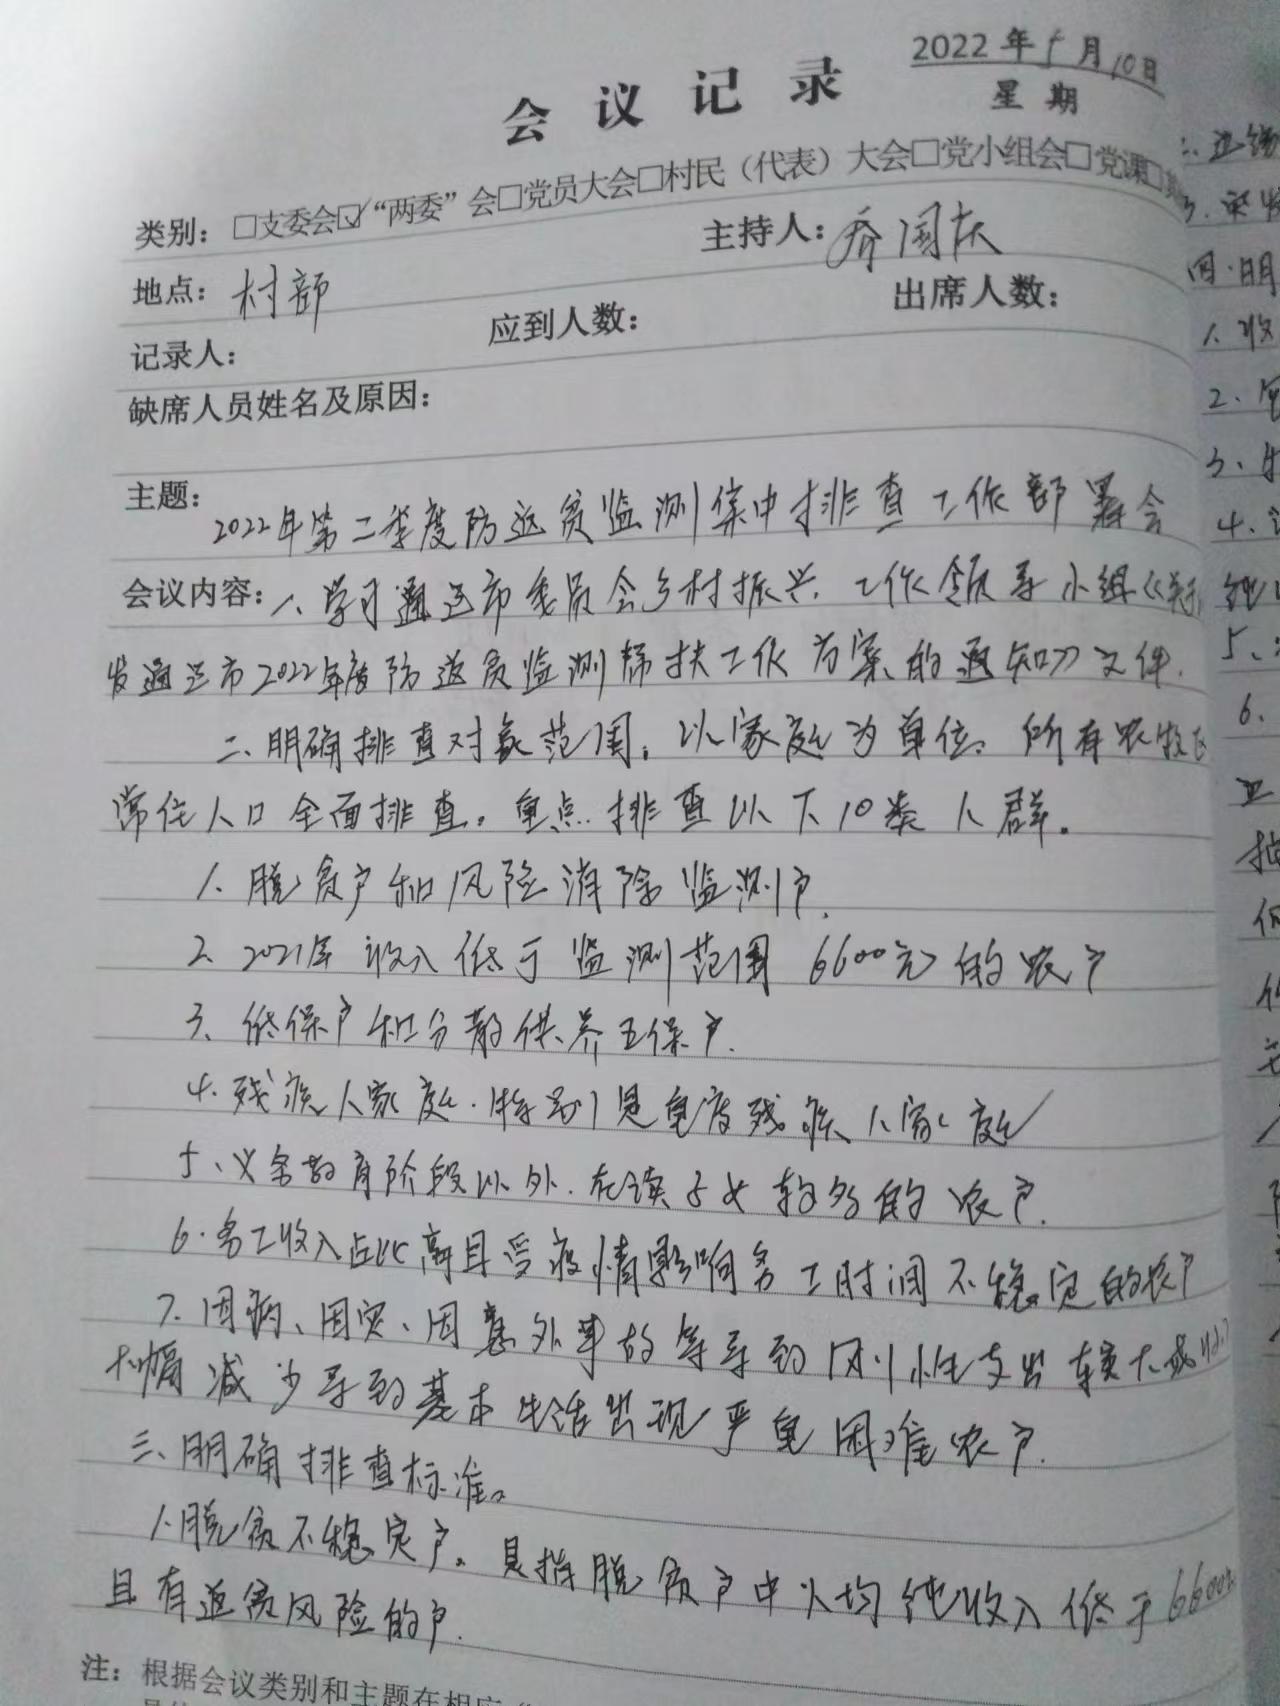 2022年5月10日
会议记录
星期
类别：□支委会☑“两委”会□党员大会□村民（代表）大会□党小组会□党课□
地点：村部
主持人：乔国庆
记录人：
应到人数：
出席人数：
缺席人员姓名及原因：
主题：2022年第二季度防返贫监测集中排查工作部署会
会议内容：一、学习通辽市委员会乡村振兴工作领导小组《关于
发通辽市2022年度防返贫监测帮扶工作方案的通知》文件.
二、明确排查对象范围。以家庭为单位、所有农牧民
常住人口全面排查。重点排查以下10类人群。
1、脱贫户和风险消除监测户.
2、2021年收入低于监测范围6600元的农户
3、低保户和分散供养五保户.
4.残疾人家庭.特别是重度残疾人家庭
5、义务教育阶段以外.在读子女较多的农户.
6.务工收入占比高且受疫情影响务工时间不稳定的农户
7.因病、因灾、因意外事故等导致刚性支出较大或收入
大幅减少导致基本生活出现严重困难农户.
三、明确排查标准。
1、脱贫不稳定户。是指脱贫户中人均纯收入低于6600元
且有返贫风险的户.
注：根据会议类别和主题在相应
二、边缘
3.
四.明
1、收
2、
3、
4、
纯
5、
6.